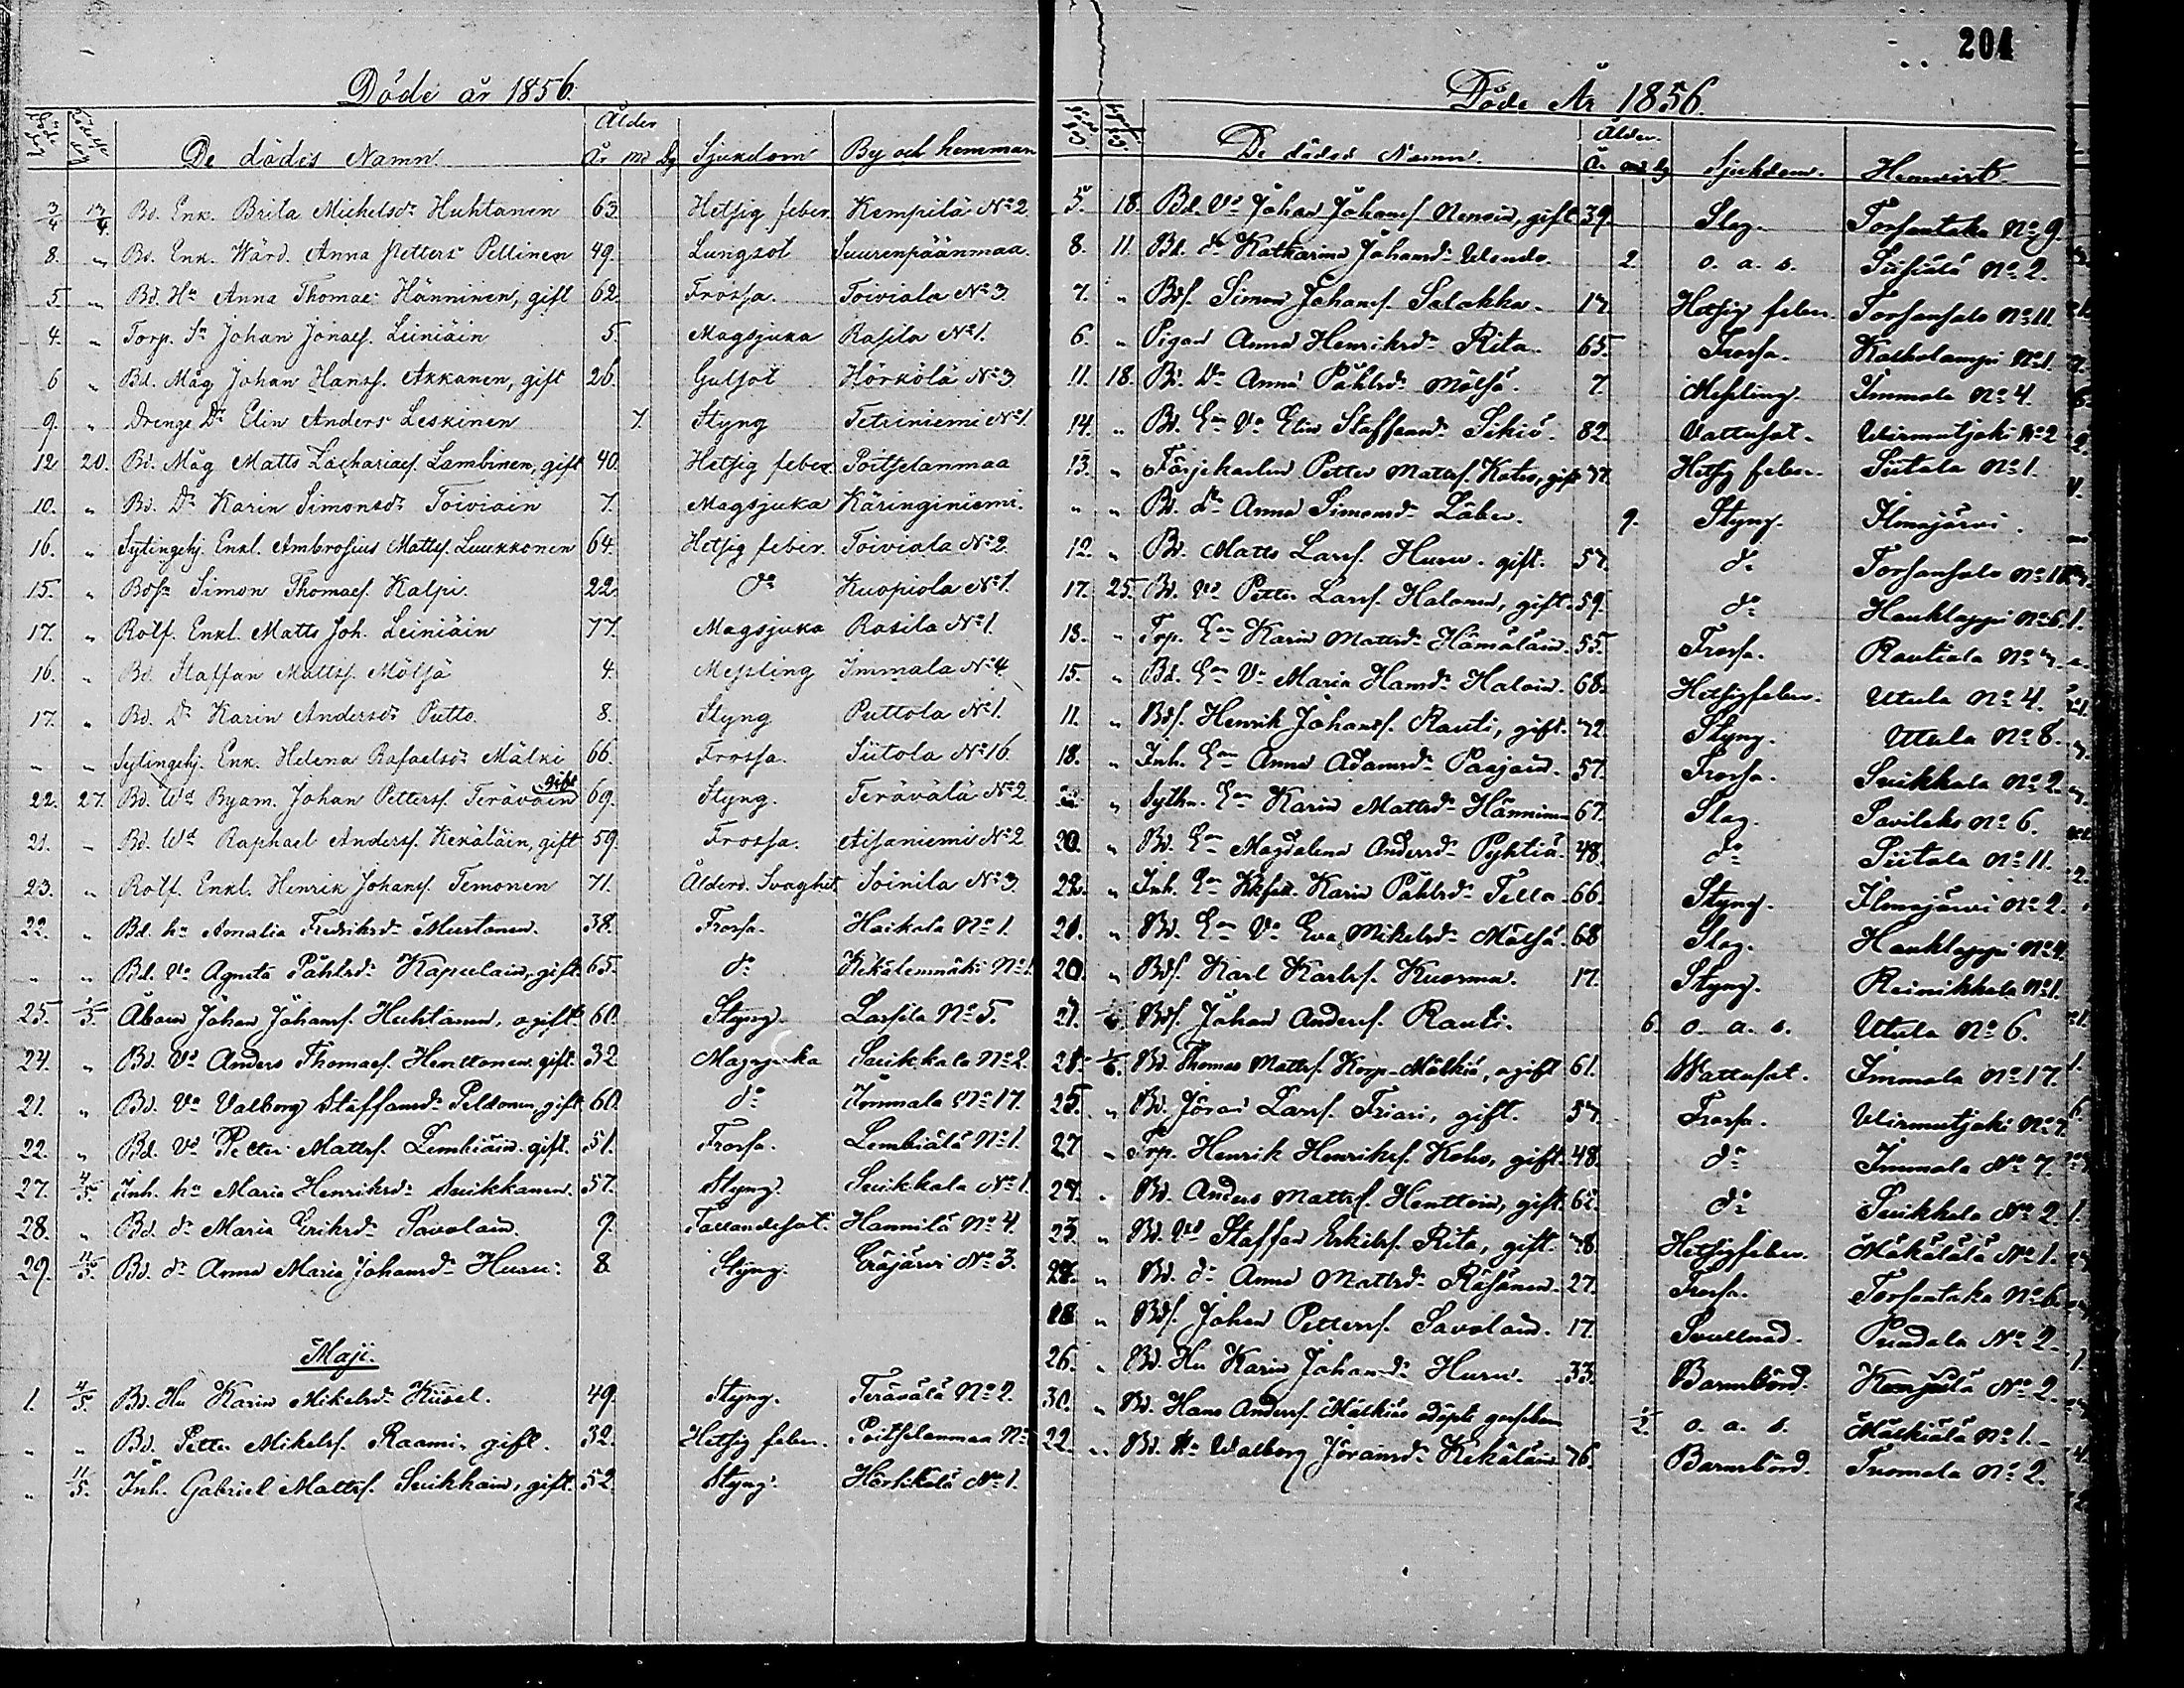 204
Döde år 1856.
Döde dag Ålder
De dödes Namn År md dg Sjukdom By och hemman
3/4 13/4 Bd. Enk. Brita Michelsdr Huhtanen 63. Hetsig feber. Kempilä No 2
8. " Bd. Enk. Wärd. Anna Petters Pellinen 49. Lungsot Suurenpäänmaa.
5. " Bd. Hu Anna Thomae Hänninen, gift 62. Frossa. Toiviala No 3
4. " Torp. Sn Johan Jonaes. Leiniäin 5. Magsjuka Rasila No 1.
6 " Bd. Måg Johan Hanss. Akkanen, gift 26. Gulsot Hörkölä No 3
9. " Drenge Dr Elin Anders Leskinen 7. Styng Tetriniemi No 1
12 20. Bd. Måg Matts Zachariaes. Lambinen, gift 40. Hetsig feber. Poitselanmaa
10. " Bd. Dr Karin Simonsdr Toiviain 7. Magsjuka Käringiniemi.
16. " Sytingehj. Enkl. Ambrosius Matts. Luukkonen 64. Hetsig feber. Toiviala No 2.
15. " Bdsn Simon Thomaes. Kalpi. 22. do Kuopiola No 1.
17. " Rotf. Enkl. Matts Joh. Leiniäin 77. Magsjuka Rasila No 1.
16. " Bd. Staffan Mattss. Mölsä 4. Messling Immala No 4.
17. " Bd. Dr Karin Andersdr Putto. 8. Styng Puttola No 1.
" " Sytingehj. Enk. Helena Rafaelsdr Mälki 66. Frossa. Siitola No 16.
gift
22. 27. Bd. Wd Byam. Johan Petterss. Teräväin 69. Styng. Terävälä No 2
21. " Bd. Wd Raphael Anderss. Kekäläin, gift 59. Frossa. Aisaniemi No 2
23. " Rotf. Enkl. Henrik Johanss. Temonen 71. Ålderd. Svaghet Soinila No 3
22. " Bd. hu Amalia Fredriksdr Mustonen. 38. Frossa. Haikala No 1.
" " Bd. Va Agneta Påhlsdr Kapulain, gift. 65. do Kekälenmäki No 1.
25. 1/5. Åboen Johan Johanss. Huhtanen, ogift. 60. Styng. Lassila No 5.
24. " Bd. Vd Anders Thomaes. Henttonen gift. 32 Magsjuka Suikkala No 2.
21. " Bd. Va Valborg Staffansdr Peldonen, gift 60. do Immala No 17.
22. " Bd. Vd Petter Mattss. Lemhiäin. gift. 51. Frossa. Lembiälä No 1.
27. 4/5. Inh. hu Maria Henriksdr Suikkanen. 57. Styng. Suikkala No 1
28. " Bd. dr Maria Eriksdr Savolain. 9. Tärandesot. Hannila No 4.
29. 11/5. Bd. dr Anna Maria Johansdr Huru. 8. Styng. Eräjärvi No 3.
Maji.
1. 4/5. Bd. Hu Karin Mikelsdr Kiisel. 49. Styng. Terävälä No 2.
" " Bd. Petter Mikelss. Raami, gift. 32. Hetsig feber. Poitselanmaa No
" 11/5. Inh. Gabriel Mattss. Suikkain, gift. 52. Styng. Härskiälä No 1.
Döde År 1856.
Ålder.
De dödes Namn. År md dg Sjukdom. Hemvist.
5. 18. Bd. Vd Johan Johanss. Nenoin, gift 39. Slag. Torsantaka No 9.
8. 11. Bd. dr Katharina Johansdr Udende. 2. o. a. s. Siisiälä No 2.
7. " Bds. Simon Johanss. Salakka. 17. Hetsig feber. Torsansalo No 11.
6. " Pigan Anna Henriksdr Rita. 65. Frossa. Kaskolampi No 1.
11. 18. Bd. Dr Anna Påhlsdr Mölsä. 7. Messling. Immala No 4.
14. " Bd. Em Va Elin Staffansdr Sikiö. 82. Vattusot. Wirmutjoki No 2
13. " Färjekarlen Petter Mattss. Kotro, gift 77. Hetsig feber. Siitola No 1.
" " Bd. dr Anna Simonsdr Läbw. 9. Styng. Ilmajärvi.
12. " Bd. Matts Larss. Huru. gift. 57. do Torsansalo No 11.
17. 25. Bd. Vd Petter Larss. Halonen, gift. 59. do Hauklappi No 6.
13. " Trp. Em Karin Mattsdr Hämäläin. 55. Frossa. Rautiala No 7.
15. " Bd. Em Va Maria Hansdr Haloin. 68. Hetsigfeber. Utula No 4.
11. " Bds. Henrik Johanss. Rauti, gift. 72. Styng. Utula No 8.
18. " Inh. Em Anna Adamsdr Paajain. 57. Frossa. Suikkala No 2.
" Sythn. Em Karin Mattsdr Hänninen 67. Slag. Savilaks No 6.
20. " Bd. Em Magdalena Andersdr Pyhtiä. 48. do Siitola No 11.
22. " Inh. Em Karin Påhlsdr Tella. 66. Styng. Ilmajärvi No 2.
21. " Bd. Em Va Eva Mikelsdr Mölsä. 68 Slag. Hauklappi No 4.
20. " Bds. Karl Karlss. Kuorma. 17. Styng. Reinikkala No 1.
21. Bds. Johan Anderss. Rauti. 6. o. a. s. Utula No 6.
28. 1/6. Bd. Thomas Mattss. Korp-Mälkiä, ogift 61. Wattusot. Immala No 17.
25. " Bd. Jöran Larss. Friari, gift. 57. Frossa. Wirmutjoki No 7.
27 " Trp. Henrik Henrikss. Koho, gift. 48. do Immala No 7.
27. " Bd. Anders Mattss. Henttoin, gift. 62. do Suikkala No 2.
23. " Bd. Vd Staffan Eskilss. Rita, gift. 78. Hetsigfeber. Mäkälälä No 1.
27. " Bd. dr Anna Mattsdr Räsänen. 27. Frossa. Torsantaka No 6.
18 " Bds. Johan Petterss. Savolain. 17. Svullnad. Pundala No 2.
26. " Bd. Hu Karin Johansdr Huru. 33. Barnsbörd. Kempilä No 2.
30. " Bd. Hans Anderss. Mälkiäs odöpte gossebarn 1/2. o. a. s. Mälkiälä No 1.
22. " Bd. Hu Walborg Jöransdr Kekäläin 76. Barnsbörd. Tuomala No 2.